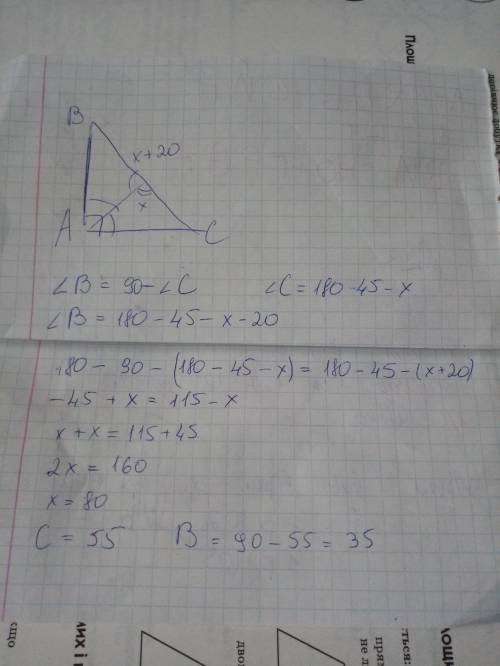 Площ
B
x+20
x
A
C
∠B = 90-∠C ∠C = 180-45-x
∠B = 180-45-x-20
180 - 90 - (180-45-x) = 180-45-(x+20)
-45 + x = 115-x
x+x = 115+45
2x = 160
x = 80
C = 55 B = 90-55 = 35